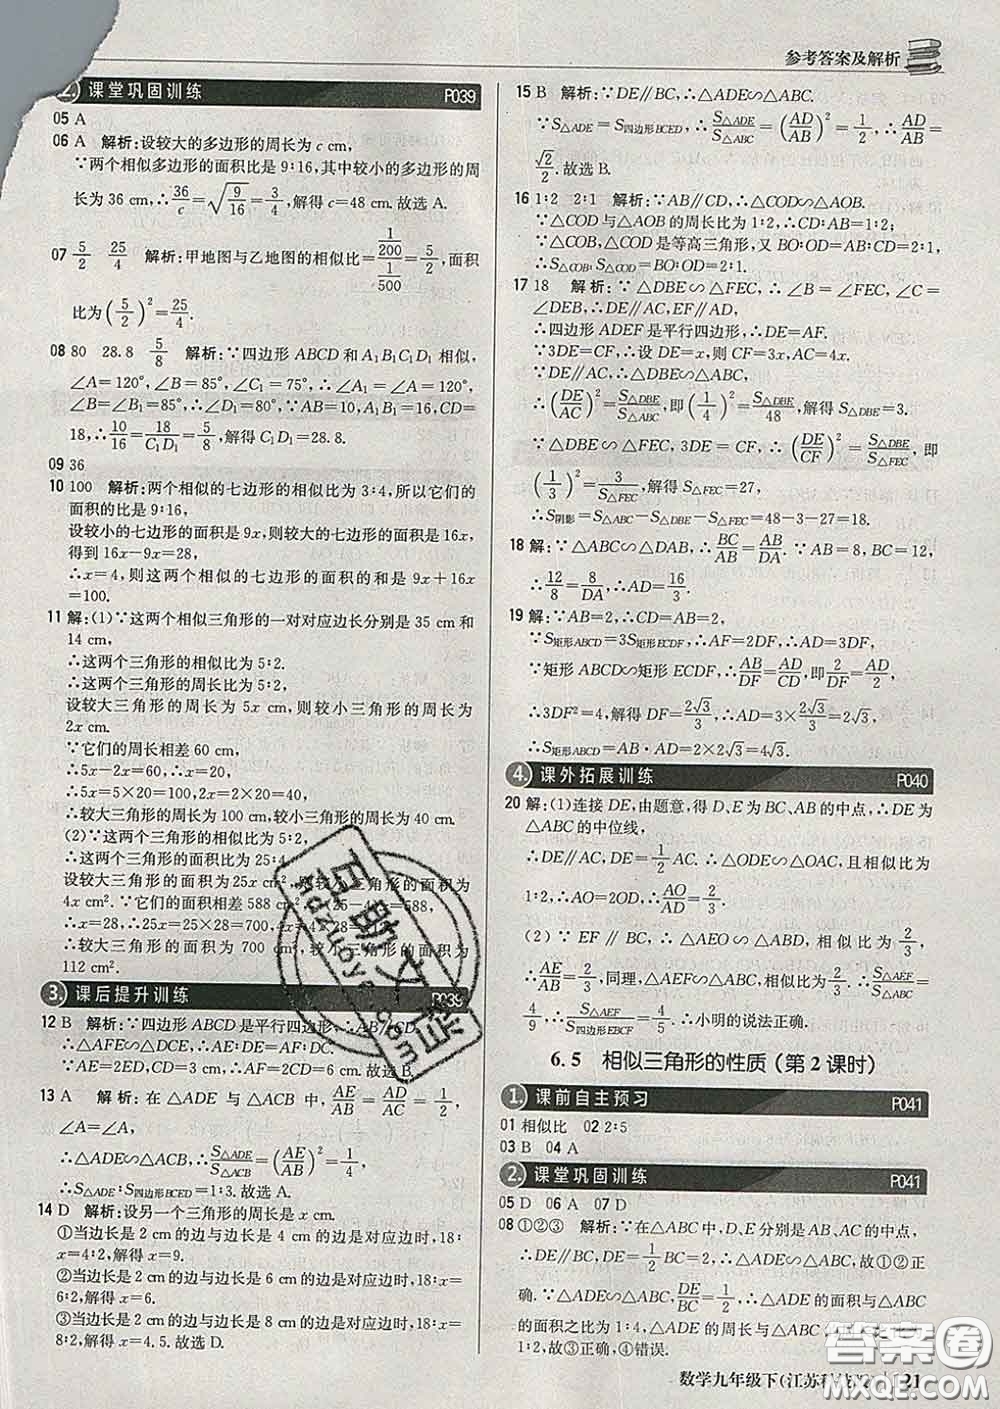 参考答案及解析
2. 课堂巩固训练 P039
05 A
06 A 解析:设较大的多边形的周长为 c cm,
∵两个相似多边形的面积比是 9∶16,其中较小的多边形的周
长为 36 cm,∴36/c=√(9/16)=3/4,解得 c=48 cm.故选 A.
07 5/2 25/4 解析:甲地图与乙地图的相似比=(1/200)/(1/500)=5/2,面积
比为(5/2)²=25/4.
08 80 28.8 5/8 解析:∵四边形 ABCD 和 A₁B₁C₁D₁ 相似,
∠A=120°,∠B=85°,∠C₁=75°,∴∠A₁=∠A=120°,
∠B₁=∠B=85°,∴∠D₁=80°,∵AB=10,A₁B₁=16,CD=
18,∴10/16=18/C₁D₁=5/8,解得 C₁D₁=28.8.
09 36
10 100 解析:两个相似的七边形的相似比为 3∶4,所以它们的
面积的比是 9∶16,
设较小的七边形的面积是 9x,则较大的七边形的面积是 16x,
得到 16x-9x=28,
∴x=4,则这两个相似的七边形的面积的和是 9x+16x
=100.
11 解:(1)∵这两个相似三角形的一对对应边长分别是 35 cm 和
14 cm,
∴这两个三角形的相似比为 5∶2.
∴这两个三角形的周长比为 5∶2,
设较大三角形的周长为 5x cm,则较小三角形的周长为
2x cm.
∵它们的周长相差 60 cm,
∴5x-2x=60,∴x=20,
∴5x=5×20=100,2x=2×20=40,
∴较大三角形的周长为 100 cm,较小三角形的周长为 40 cm.
(2)∵这两个三角形的相似比为 5∶2,
∴这两个三角形的面积比为 25∶4,
设较大三角形的面积为 25x cm²,则较小三角形的面积为
4x cm².∵它们的面积相差 588 cm²,∴(25-4)x=588,
∴x=28,∴25x=25×28=700,4x=4×28=
∴较大三角形的面积为 700 cm²,较小三角形的面积为
112 cm².
3. 课后提升训练 P039
12 B 解析:∵四边形 ABCD 是平行四边形,∴AB∥CD,
∴△AFE∽△DCE,∴AE∶DE=AF∶DC,
∵AE=2ED,∴AF=2CD=2AB.
13 A 解析:在△ADE 与△ACB 中,AE/AB=AD/AC=1/2,
∠A=∠A,
∴△ADE∽△ACB,∴S△ADE/S△ACB=(AE/AB)²=1/4,
∴S△ADE∶S四边形BCED=1∶3.故选 A.
14 D 解析:设另一个三角形的周长是 x cm.
①当边长是 2 cm 的边与边长是 4 cm 的边是对应边时,18∶
x=4∶2,解得 x=9.
②当边长是 2 cm 的边与边长是 6 cm 的边是对应边时,18∶x=
6∶2,解得 x=6.
③当边长是 2 cm 的边与边长是 8 cm 的边是对应边时,18∶x=
8∶2,解得 x=4.5.故选 D.
15 B 解析:∵DE∥BC,∴△ADE∽△ABC.
∵S△ADE=S四边形BCED,∴S△ADE/S△ABC=(AD/AB)²=1/2,∴AD/AB=
√2/2.故选 B.
16 1∶2 2∶1 解析:∵AB∥CD,∴△COD∽△AOB.
∵△COD 与△AOB 的周长比为 1∶2,∴CD∶AB=1∶2,
∵△COB,△COD 是等高三角形,又 BO∶OD=AB∶CD=2∶1,
∴S△COB∶S△COD=2∶1.
17 18 解析:∵△DBE∽△FEC,∴∠B=∠FEC,∠C=
∠DEB,∴DE∥AC,EF∥AD,
∴四边形 ADEF 是平行四边形,∴DE=AF.
∵3DE=CF,∴设 DE=x,则 CF=3x,AC=4x.
∵DE∥AC,∴△DBE∽△ABC,
∴(DE/AC)²=S△DBE/S△ABC,即(1/4)²=S△DBE/48,解得 S△DBE=3.
∵△DBE∽△FEC,3DE=CF,∴(DE/CF)²=S△DBE/S△FEC,即
(1/3)²=3/S△FEC,解得 S△FEC=27,
∴S阴影=S△ABC-S△DBE-S△FEC=48-3-27=18.
18 解:∵△ABC∽△DAB,∴BC/AB=AB/DA.∵AB=8,BC=12,
∴12/8=8/DA,∴AD=16/3.
19 解:∵AB=2,∴CD=AB=2,
∵S矩形ABCD=3S矩形ECDF,∴AF=2DF,∴AD=3DF,
∵矩形 ABCD∽矩形 ECDF,∴AB/DF=AD/CD,即2/DF=AD/2,
∴3DF²=4,解得 DF=2√3/3,∴AD=3×2√3/3=2√3,
∴S矩形ABCD=AB·AD=2×2√3=4√3.
4. 课外拓展训练 P040
20 解:(1)连接 DE,由题意,得 D、E 为 BC、AB 的中点,∴DE 为
△ABC 的中位线,
∴DE∥AC,DE=1/2AC.∴△ODE∽△OAC,且相似比为
1∶2,∴AO=2OD,∴AO/AD=2/3.
(2)∵EF∥BC,∴△AEO∽△ABD,相似比为2/3,
∴AE/AB=2/3,同理,△AEF∽△ABC,∴AE/AB=2/3,∴S△AEF/S△ABC=
4/9,∴S△AEF/S四边形EBCF=4/5,∴小明的说法正确.
6.5 相似三角形的性质(第 2 课时)
1. 课前自主预习 P041
01 相似比 02 2∶5
03 B 04 A
2. 课堂巩固训练 P041
05 D 06 A 07 D
08 ①②③ 解析:∵在△ABC 中,D、E 分别是 AB、AC 的中点,
∴DE∥BC,DE=1/2BC=2,∴△ADE∽△ABC,故①②正
确.∵△ADE∽△ABC,DE/BC=1/2,∴△ADE 的面积与△ABC
的面积之比为 1∶4,△ADE 的周长与△ABC
1∶2,故③正确,④错误.
数学九年级下(江苏科技) 21
答案圈
MXQE.COM